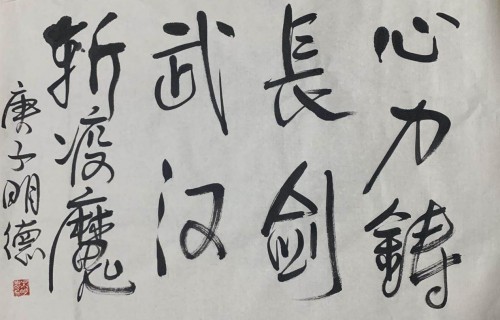 心力鑄
長劍
武汉
斩疫魔
庚子明德